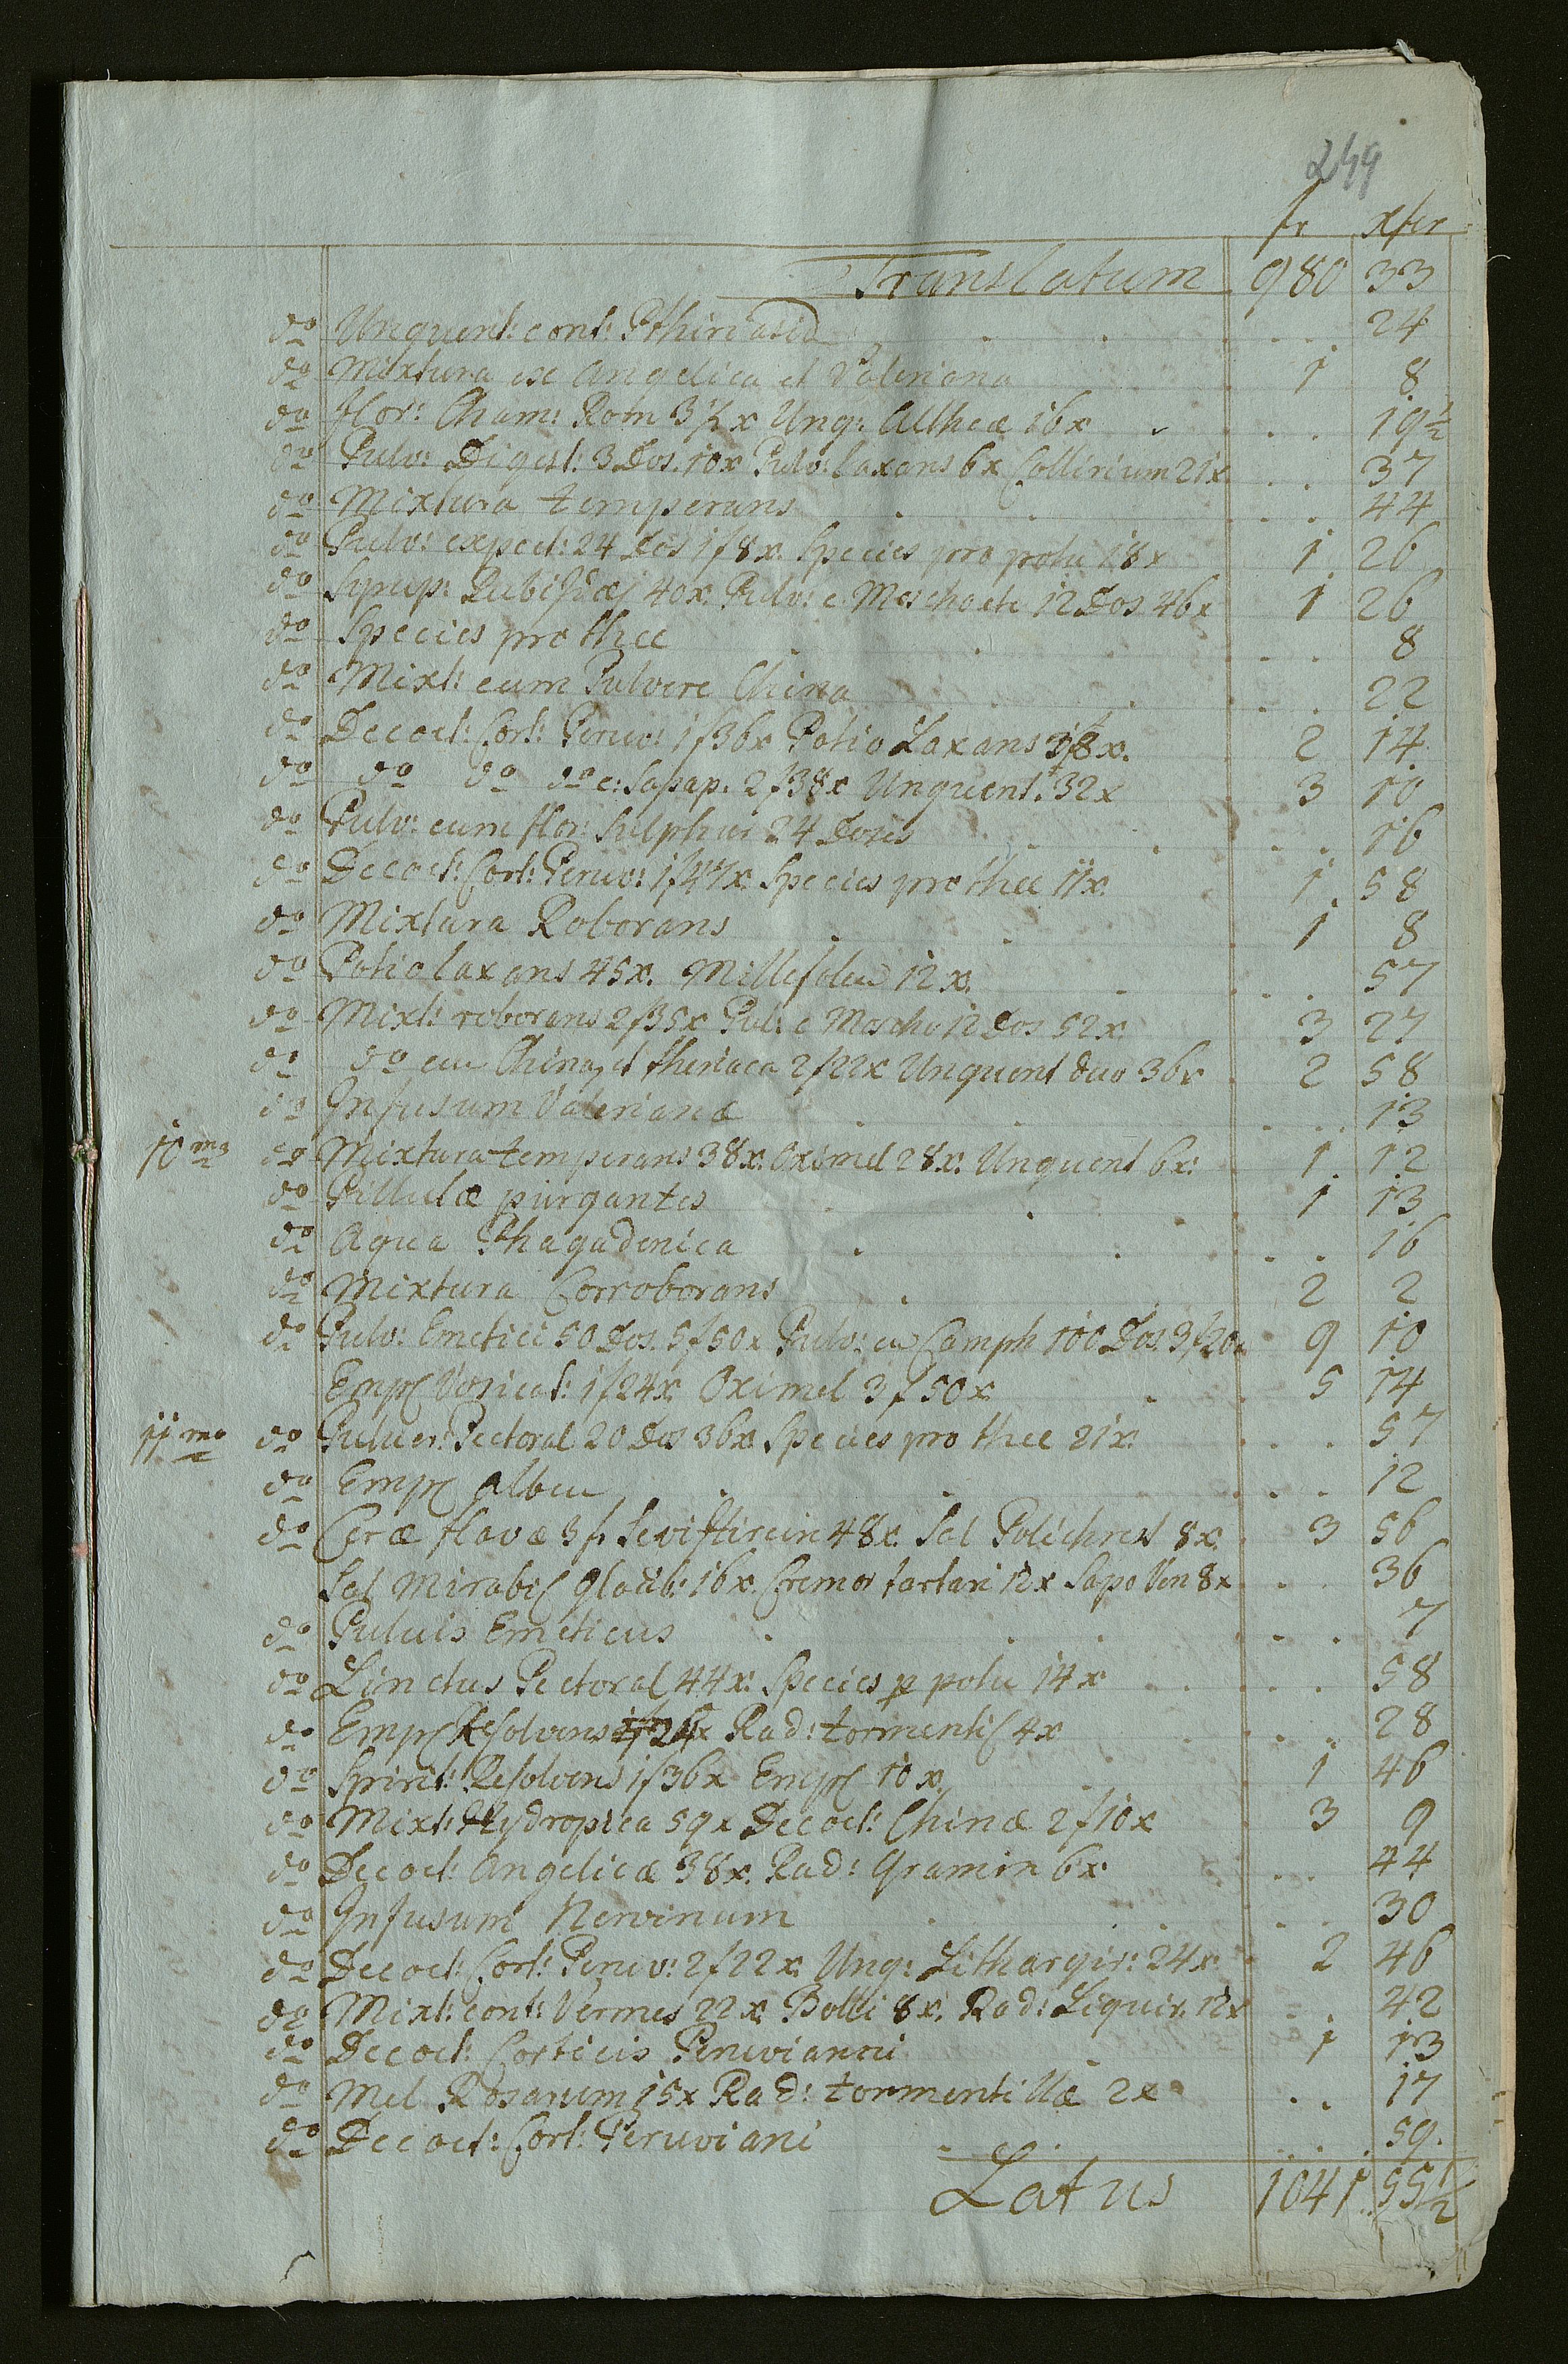 249
fr xfer
Translatum 980 33
do Unquent: cont: Pthiriasin . . . . . 24
do Mixtura ex Angelica et Valeriana 1 8
do flor: Cham: Rom 3½x Ung: Altheæ 16x . . . 19½
do Pulv: Digest: 3 Dos. 10x Pulv: laxans 6x Collirium 21x . . 37
do Mixtura temperans . . . . 44
do Pulv: expect: 24 Dos 1f8x. Species pro potu 18x 1 26
do Syrup: Rubi Idæi 40x. Pulv: c Moscho etc 12 Dos. 46x 1 26
do Species pro thee . . . 8
do Mixt: cum Pulvere China . . . 22
do Decoct: Cort: Peruv: 1f36x Potio Laxans 38x. 2 14
do do do do c: Sapap. 2f38x Unquent: 32x 3 10
do Pulv: cum flor: Sulphur 24 Doses . . . 16
do Decoct: Cort: Peruv: 1f47x Species pro thee 11x 1 58
do Mixtura Roborans . . 1 8
do Potio laxans 45x. Millefoliu 12x. . . . 57
do Mixt: roborans 2f35x Pul: c Moscho 12 Dos 52x 3 27
do do cu China et theriaca 2f22x Unquent duo 36x 2 58
do Infusum Valerianæ . . . 13
10ma do Mixtura temperans 38x. Oximel 28x. Unquent 6x: 1 12
do Pillulæ purgantes 1 13
do Aqua Phagadenica . . . 16
do Mixtura Corroborans 2 2
do Pulv: Emetici 50 Dos. 5f50x Pulv: cu Camph 100 Dos. 3f20x 9 10
Empl Vesicat: 1f24x Oximel 3f50x . 5 14
11ma do Pulver: Pectoral 20 Dos 36x. Species pro thee 21x. . . . 57
do Empl albu . . . 12
do Ceræ flavæ 3f. 48x. Sal Polichrest 8x. 3 56
Sal Mirabil glaub: 16x. Cremor tartari 12x Sapo Ven 8x . . 36
do Pulvis Emeticus . . . 7
do Linctus Pectoral 44x. Species p potu 14x . . . 58
do Empl Resolvens 24x Rad: tormentil 4x . . 28
do Spirit: Resolvens 1f36x Empl 10x 1 46
do Mixt: Hydropica 59x Decoct: Chinæ 2f10x 3 9
do Decoct: Angelicæ 38x. Rad: Gramin 6x . . 44
do Infusum Nervinum . . . 30
do Decoct: Cort: Peruv: 2f22x. Ung: Lithargir: 24x 2 46
do Mixt: cont: Vermes 22x Bolli 8x. Rad: Liquir. 12x . . 42
do Decoct: Corticis Peruviani 1 13
do Mel Rosarum 15x Rad: tormentillæ 2x . . 17
do Decoct: Cort: Peruviani . . . 59.
Latus 1041 55½